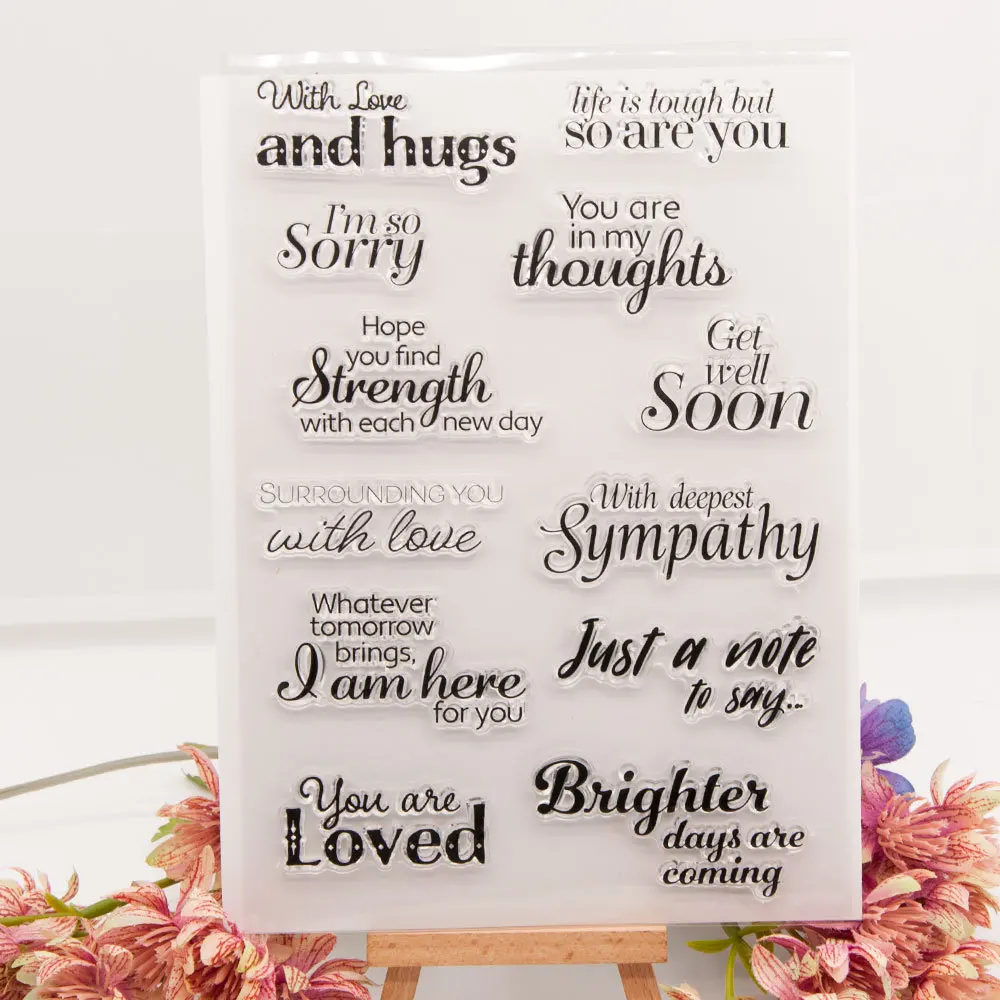 With Love
and hugs
life is tough but
so are you
I'm so
Sorry
You are
in my
thoughts
Hope
you find
Strength
with each new day
Get
well
Soon
SURROUNDING YOU
with love
With deepest
Sympathy
Whatever
tomorrow
brings,
I am here
for you
Just a note
to say...
You are
Loved
Brighter
days are
coming